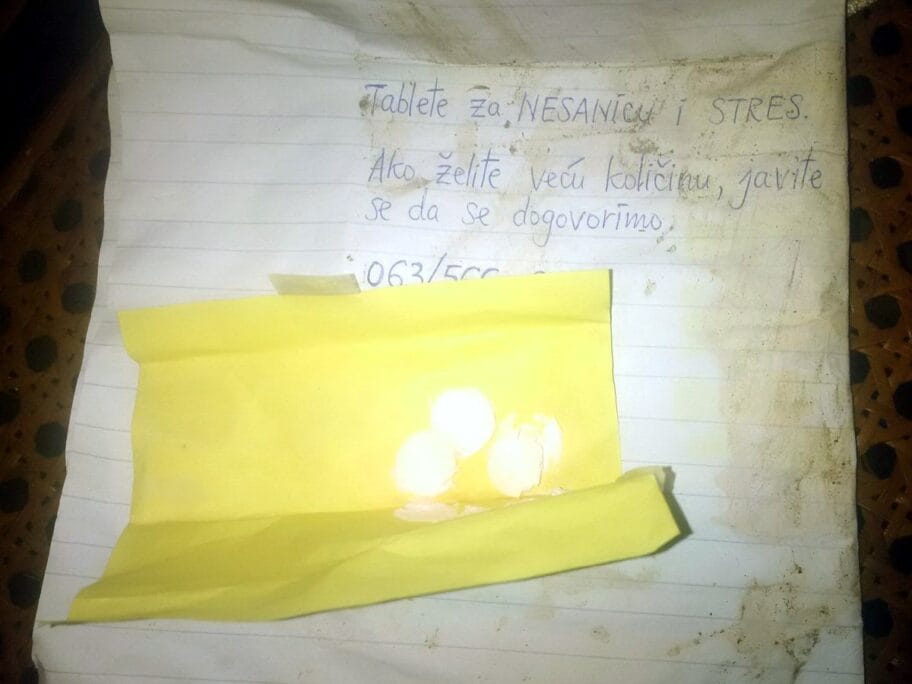 Tablete za NESANICU i STRES.
Ako želite veću količinu, javite
se da se dogovorimo.
063/566